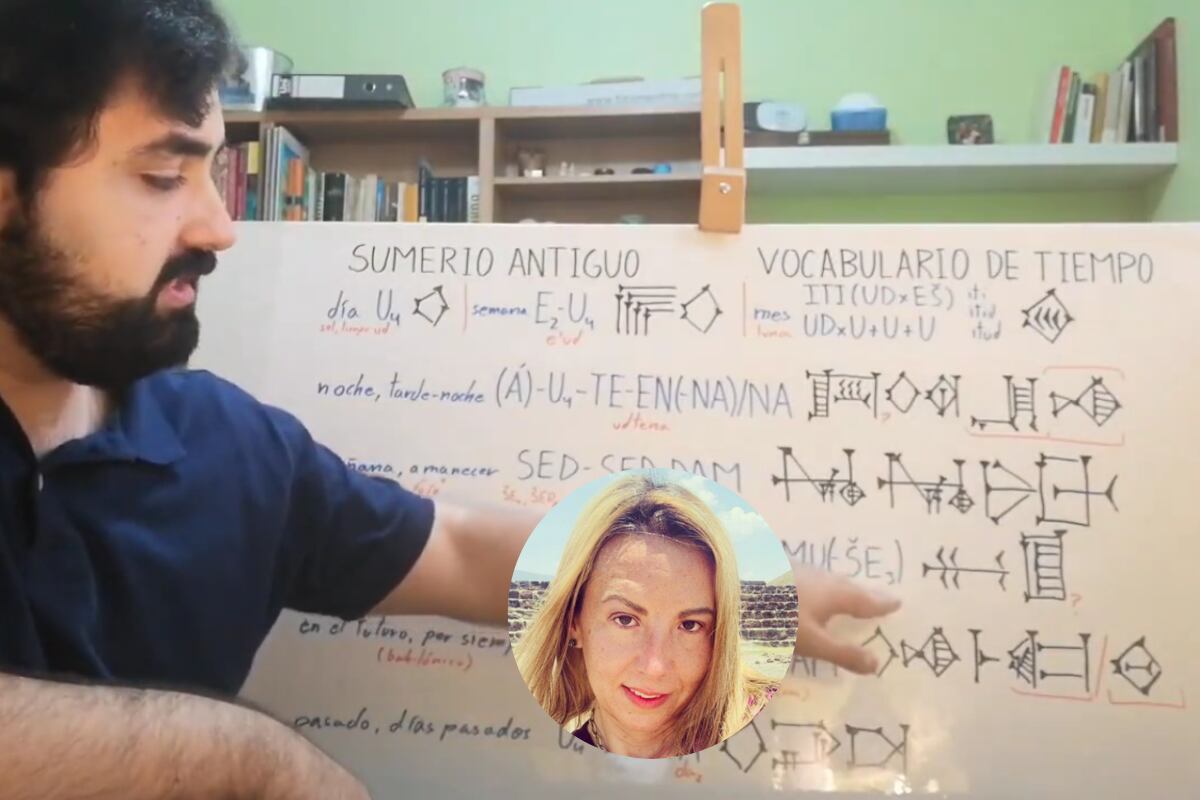 SUMERIO ANTIGUO
VOCABULARIO DE TIEMPO
día U₄
sol, tiempo ud
semana E₂-U₄
e'ud
mes
luna
ITI(UD×EŠ)
UD×U+U+U
iti
itid
itud
noche, tarde-noche (Á)-U₄-TE-EN(-NA)/NA
?
udtena
amanecer SED-SED
MU(-ŠE₃)
?
en el futuro, por
(babilónico)
pasado, días pasados U₄